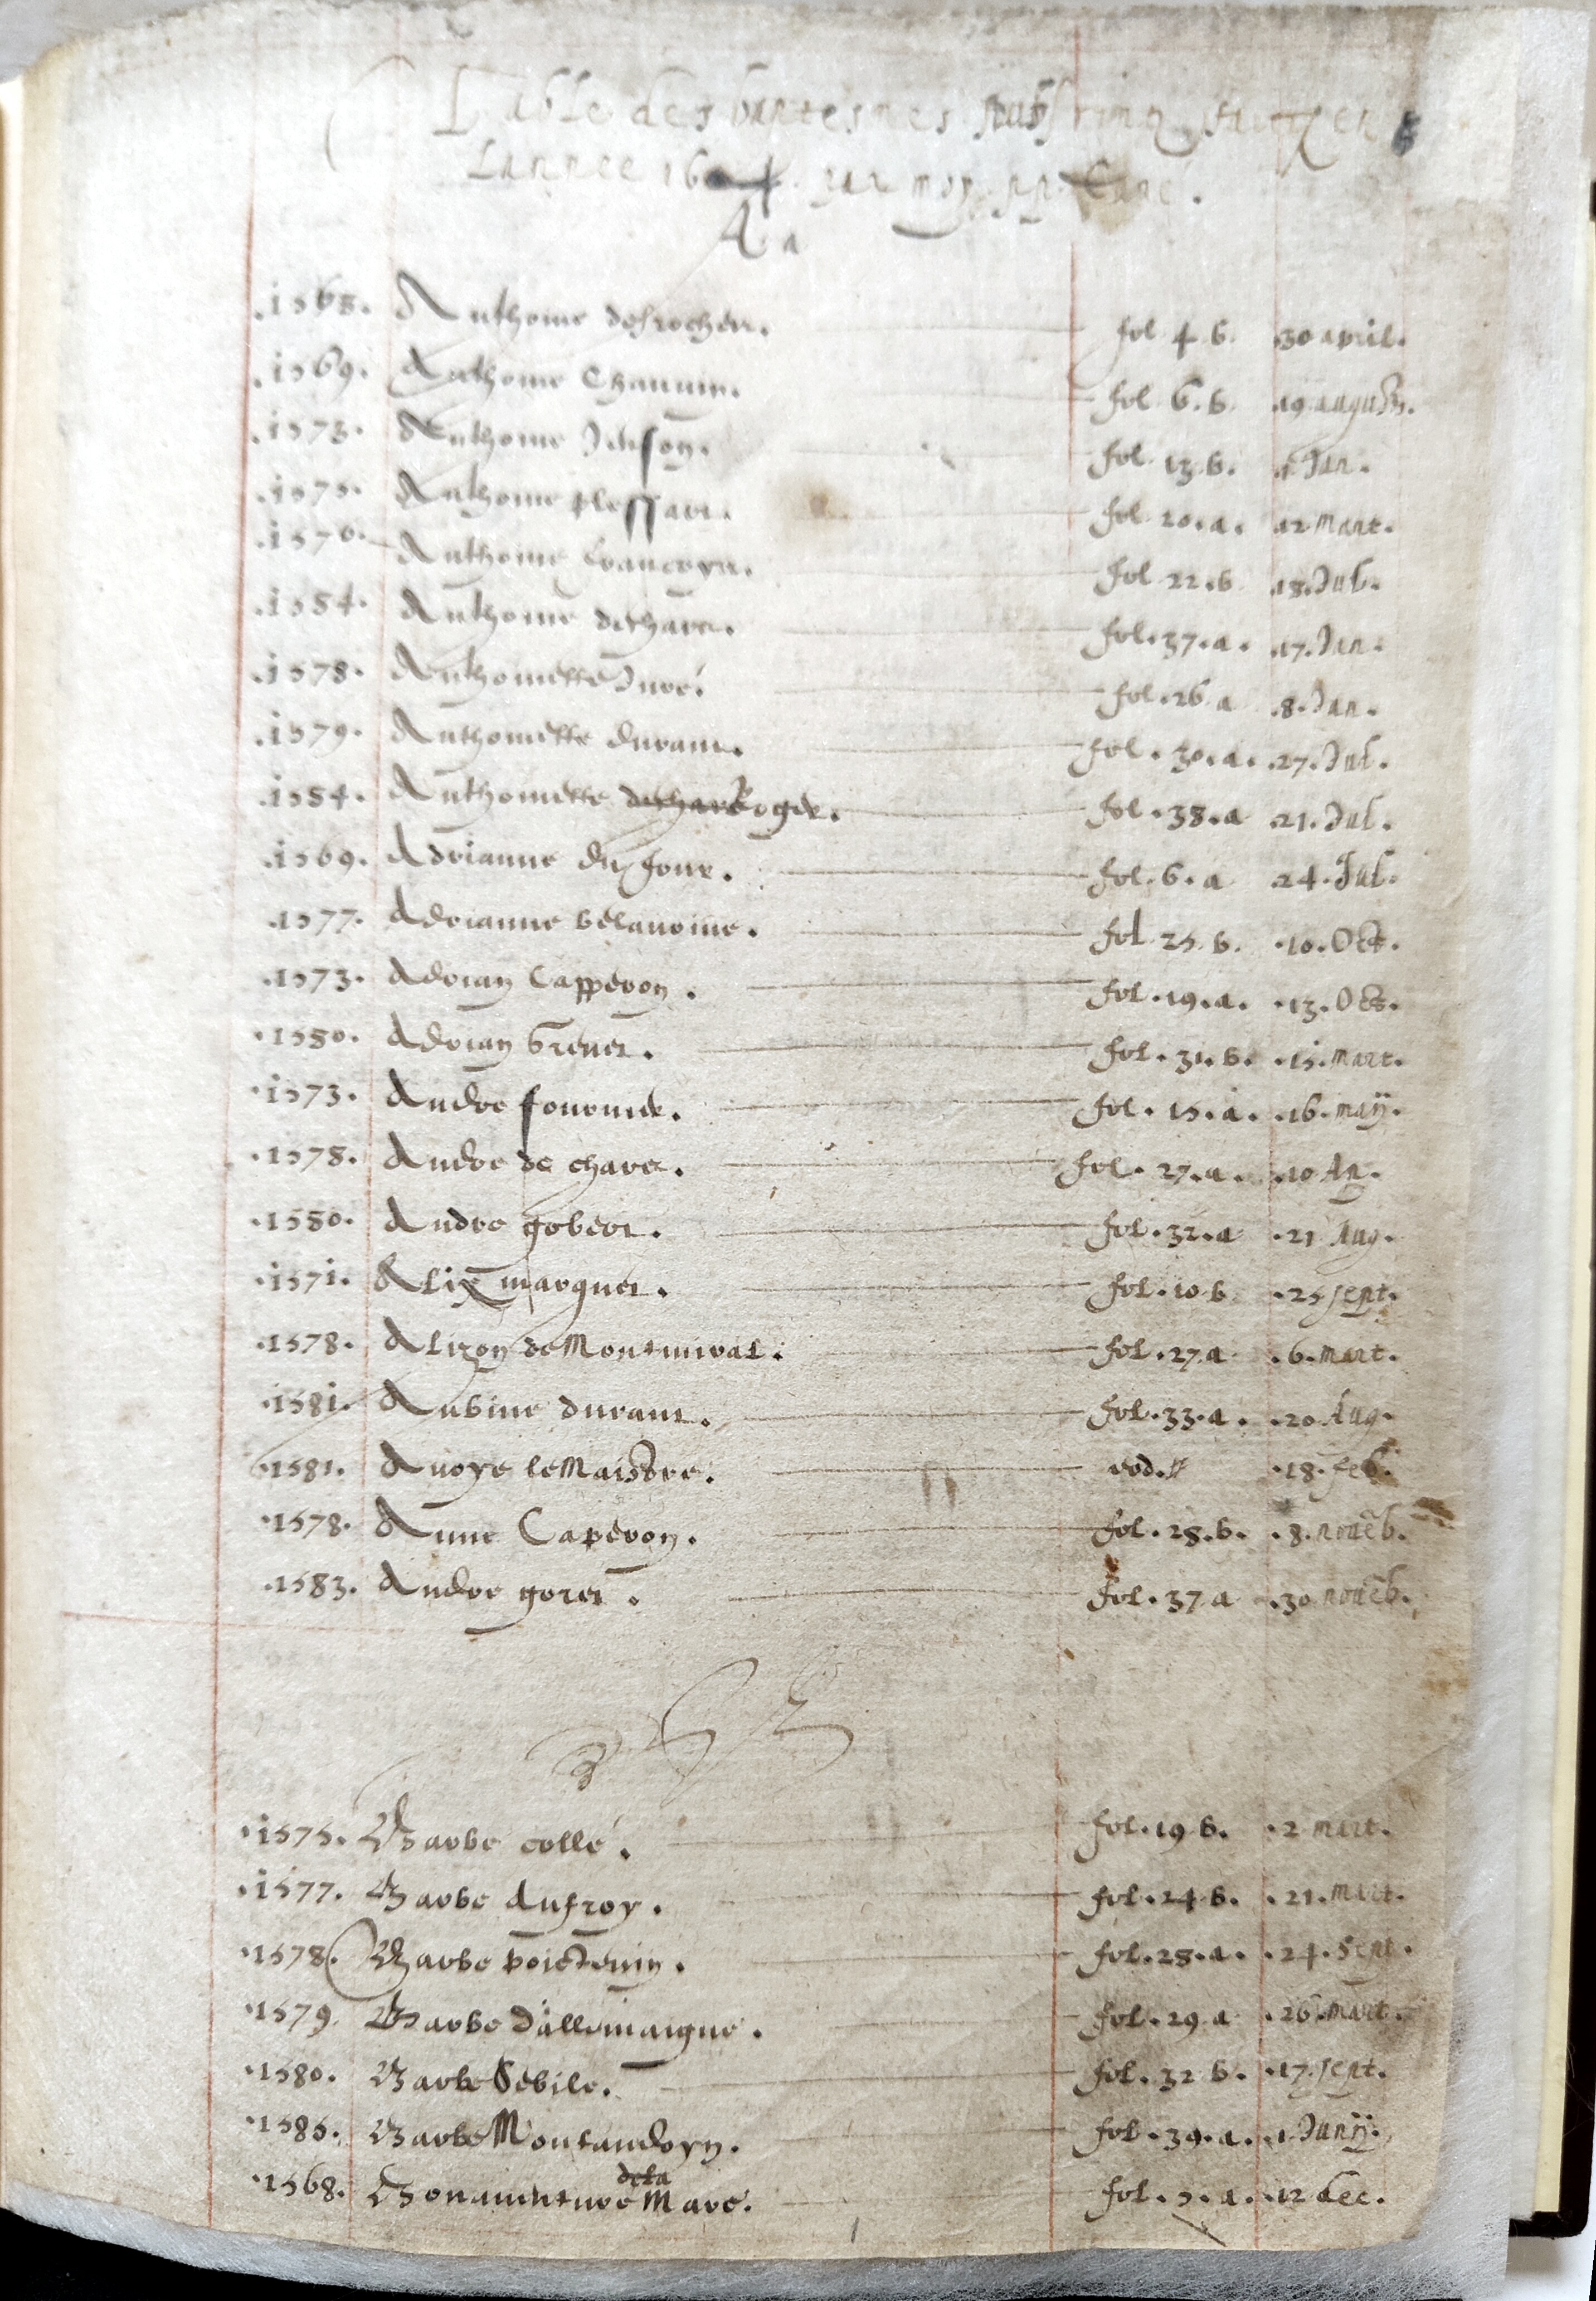 Table des baptesmes
Lannee 16 par moy
A. a
.1568. Anthoine desrocher. fol 4 b. .30 april.
.1569. Anthoine Chauuin. fol 6. b. .19 augusti.
.1573. Anthoine fol 13 b. .1. Jan.
.1575. Anthoine plessart. fol 20. a. .12 Mart.
.1576. Anthoine francoys. fol 22. b .18. Jul.
.1584. Anthoine dethare. fol. 37. a. .17. Jan.
.1578. Anthoinette Juré. fol. 26 a .8. Jan.
.1579. Anthoinette durant. fol. 30. a. .27. Jul.
.1584. Anthoinette Roger. fol. 38. a .21. Jul.
.1569. Adrianne du four. fol. 6. a .24. Jul.
.1577. Adrianne fol 25. b. .10. Oct.
.1573. Adrian Capperon. fol. 19. a. .13. Oct.
.1580. Adrian Greuet. fol. 31. b. .15. mart.
.1573. Andre fournier. fol. 15. a. .16. may.
.1578. Andre de chare. fol. 27. a. .10 Ap.
.1580. Andre gobert. fol. 32. a .21 Aug.
.1571. Alix marquet. fol. 10 b .25 sept.
.1578. Alizon de Montmiral. fol. 27. a .6. mart.
.1581. Aubine durant. fol. 33. a. .20 Aug.
.1581. Auoye le Maistre. eod. .18. feb.
.1578. Anne Caperon. fol. 28. b. .8. nouēb.
.1583. Andre goret. fol. 37 a .30 nouēb.
B
.1575. Barbe collé. fol. 19 b. .2 mart.
.1577. Barbe Aufroy. fol. 24 b. .21. Mart.
.1578. Barbe poicteuin. fol. 28. a. .24. Sept.
.1579. Barbe dallemaigne. fol. 29. a .26 mart.
.1580. Barbe Sebile. fol. 32 b. .17. sept.
.1585. Barbe Montandoyn. fol. 39. a. .1. Junij.
dela
.1568. Bonauenture Mare. fol. 5. a. .12 dec.